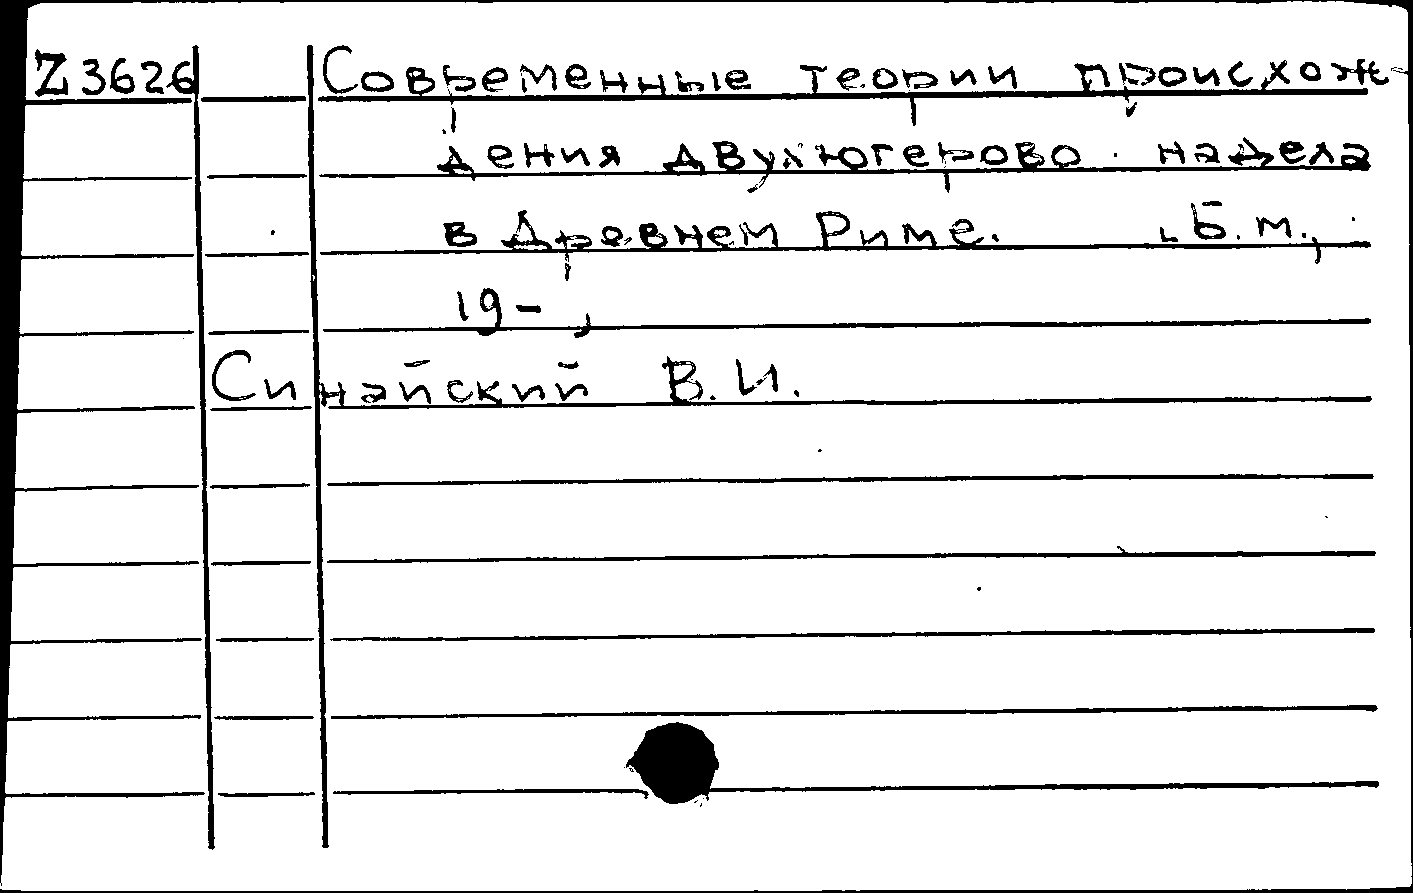 Z3626 Современные теории происхож-
дения двухюгерово надела
в Древнем Риме. Б.м.,
19- ,
Синайский В.И.